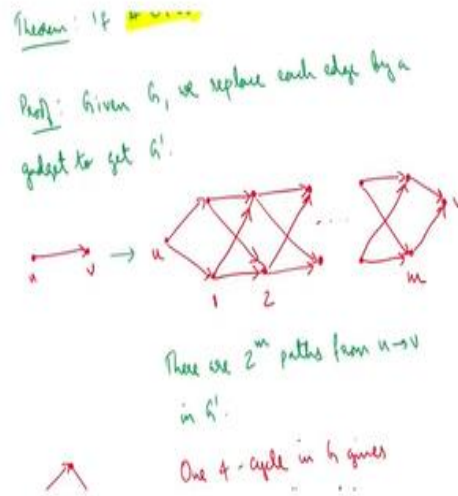 Theorem: If #
Proof: Given G, we replace each edge by a
gadget to get G'.
u v → u v
1 2 m
There are 2^m paths from u→v
in G'.
One 4-cycle in G gives